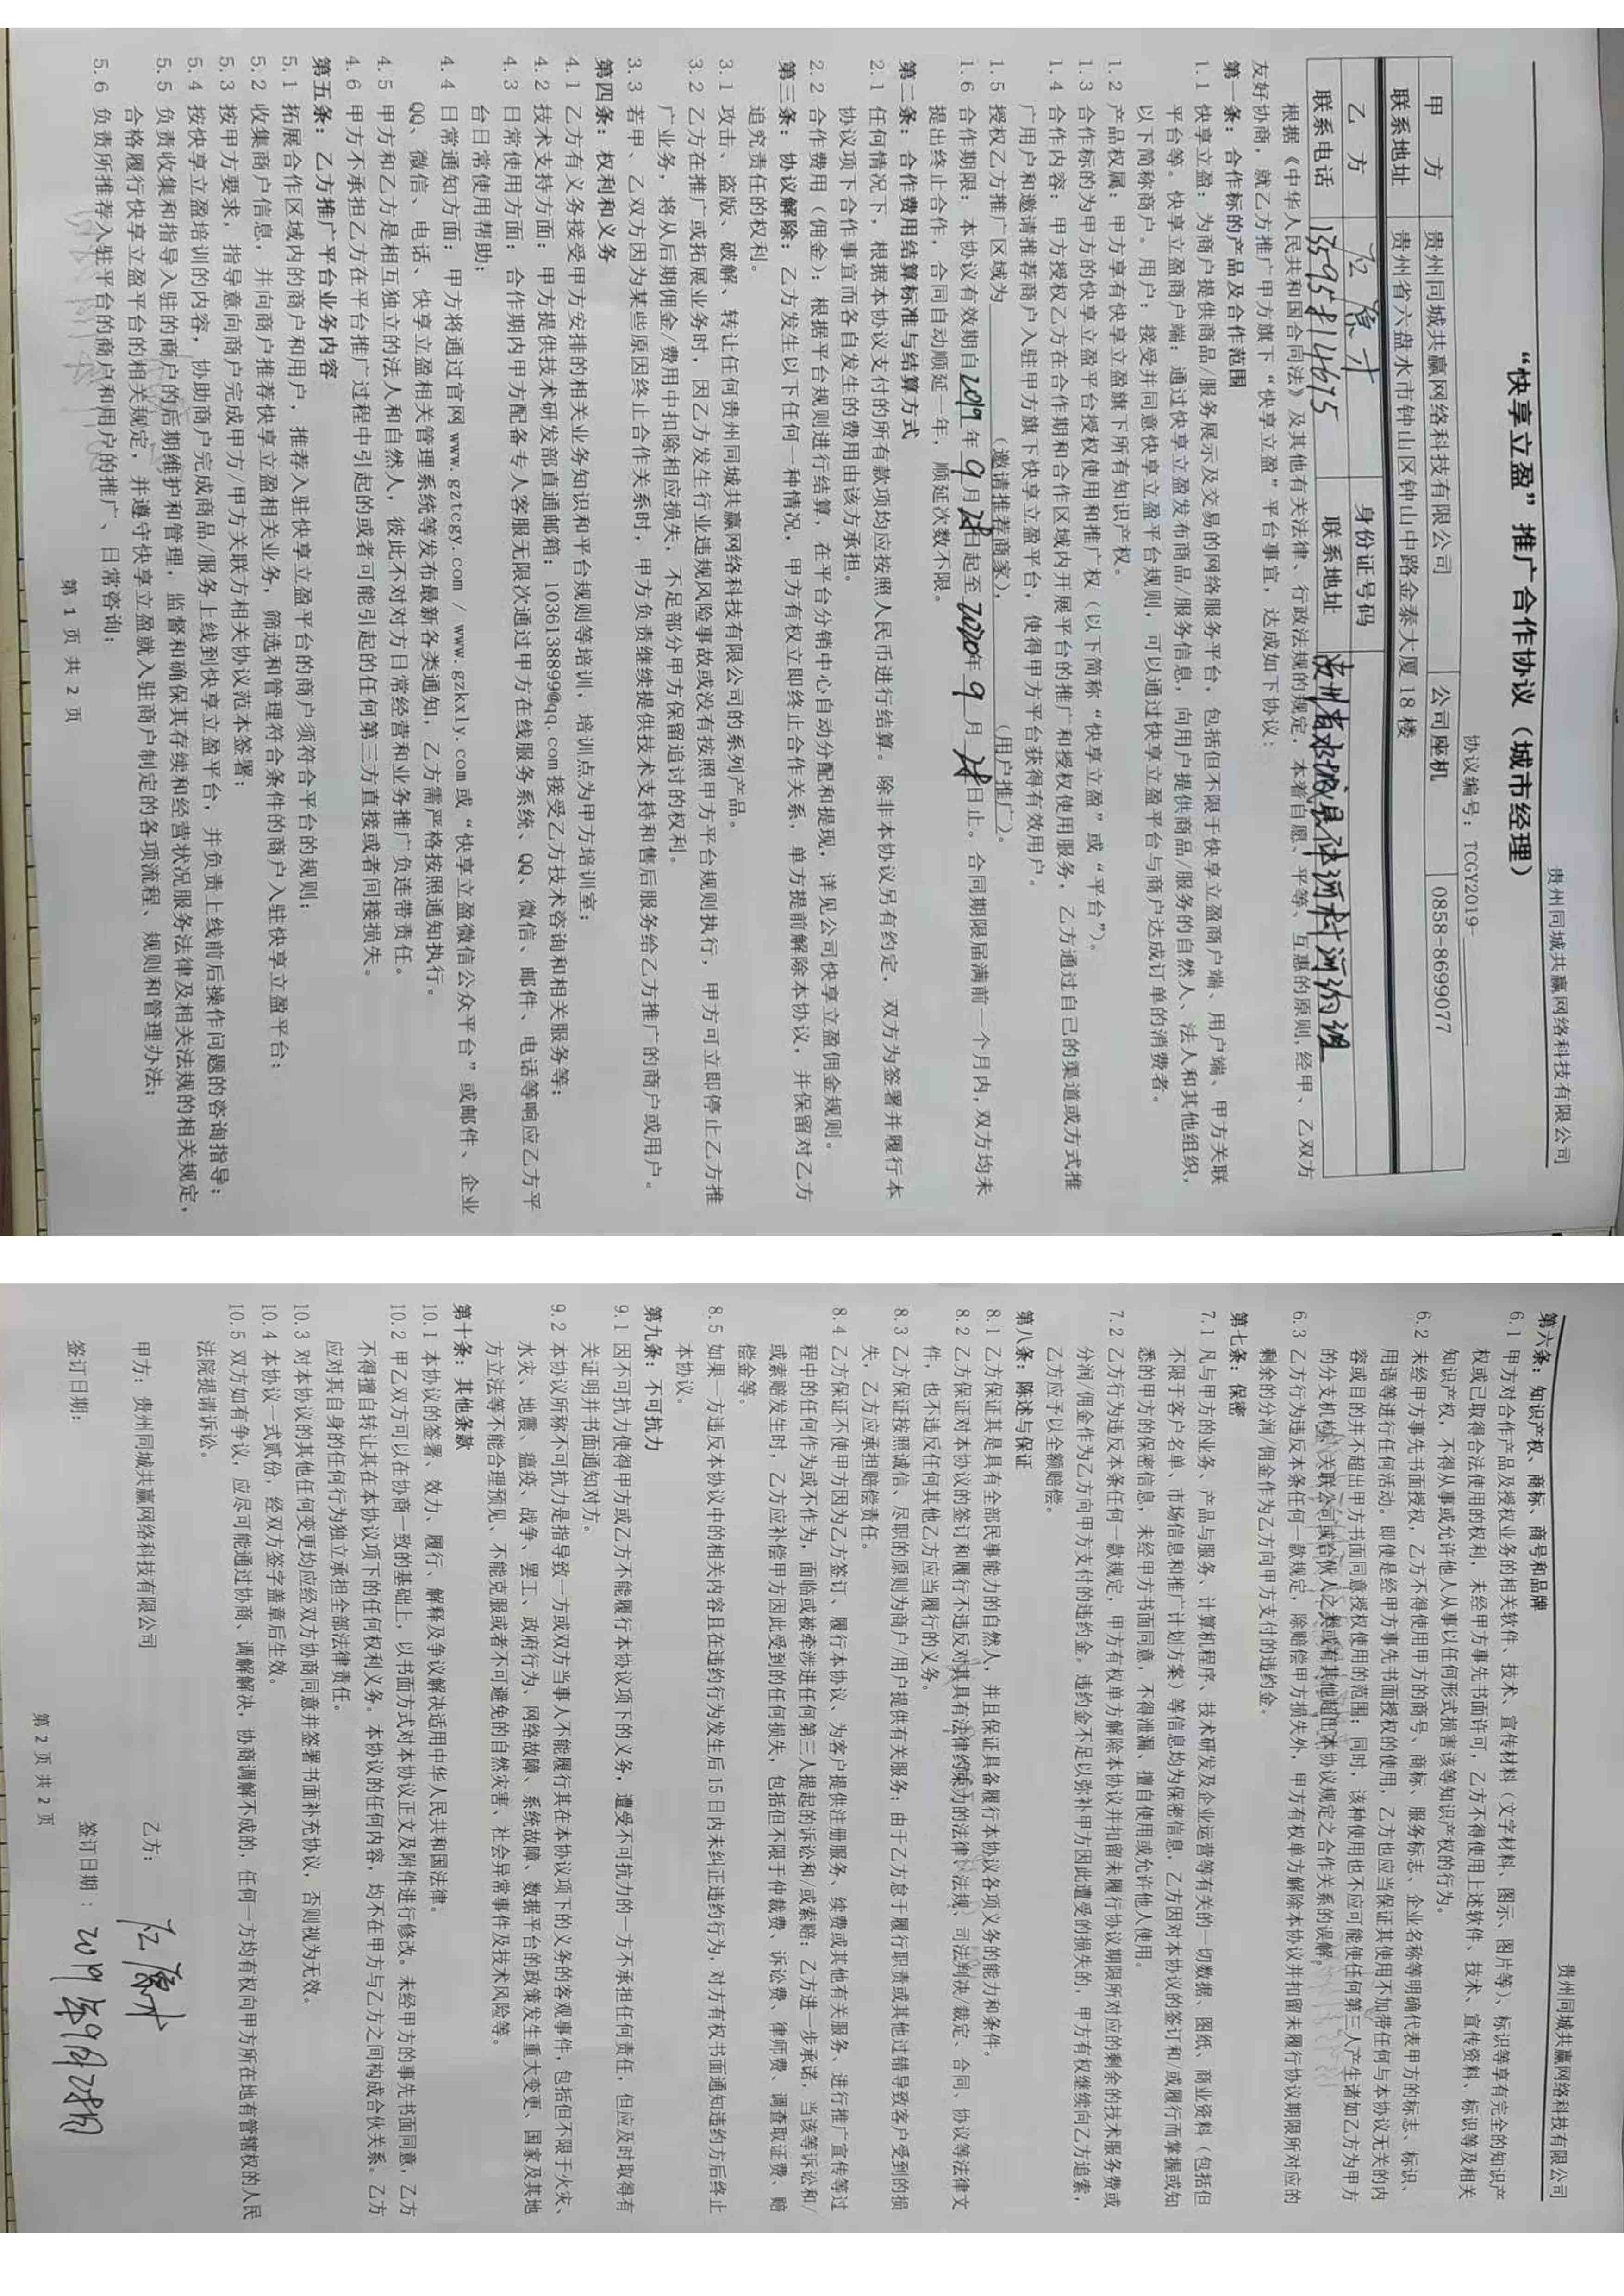 贵州同城共赢网络科技有限公司
“快享立盈”推广合作协议（城市经理）
协议编号：TCGY2019-
甲 方 贵州同城共赢网络科技有限公司 公司座机 0858-8699077
联系地址 贵州省六盘水市钟山区钟山中路金泰大厦 18 楼
乙 方 身份证号码
联系电话 联系地址
根据《中华人民共和国合同法》及其他有关法律、行政法规的规定，本着自愿、平等、互惠的原则，经甲、乙双方
友好协商，就乙方推广甲方旗下“快享立盈”平台事宜，达成如下协议：
第一条：合作标的产品及合作范围
1.1 快享立盈：为商户提供商品/服务展示及交易的网络服务平台，包括但不限于快享立盈商户端、用户端、甲方关联
平台等。快享立盈商户端：通过快享立盈发布商品/服务信息，向用户提供商品/服务的自然人、法人和其他组织，
以下简称商户。用户：接受并同意快享立盈平台规则，可以通过快享立盈平台与商户达成订单的消费者。
1.2 产品权属：甲方享有快享立盈旗下所有知识产权。
1.3 合作标的为甲方的快享立盈平台授权使用和推广权（以下简称“快享立盈”或“平台”）。
1.4 合作内容：甲方授权乙方在合作期和合作区域内开展平台的推广和授权使用服务，乙方通过自己的渠道或方式推
广用户和邀请推荐商户入驻甲方旗下快享立盈平台，使得甲方平台获得有效用户。
1.5 授权乙方推广区域为（邀请推荐商家），（用户推广）。
1.6 合作期限：本协议有效期自2019年9月28日起至2020年9月28日止。合同期限届满前一个月内，双方均未
提出终止合作，合同自动顺延一年，顺延次数不限。
第二条：合作费用结算标准与结算方式
2.1 任何情况下，根据本协议支付的所有款项均应按照人民币进行结算。除非本协议另有约定，双方为签署并履行本
协议项下合作事宜而各自发生的费用由该方承担。
2.2 合作费用（佣金）：根据平台规则进行结算，在平台分销中心自动分配和提现，详见公司快享立盈佣金规则。
第三条：协议解除：乙方发生以下任何一种情况，甲方有权立即终止合作关系，单方提前解除本协议，并保留对乙方
追究责任的权利。
3.1 攻击、盗版、破解、转让任何贵州同城共赢网络科技有限公司的系列产品。
3.2 乙方在推广或拓展业务时，因乙方发生行业违规风险事故或没有按照甲方平台规则执行，甲方可立即停止乙方推
广业务，将从后期佣金/费用中扣除相应损失，不足部分甲方保留追讨的权利。
3.3 若甲、乙双方因为某些原因终止合作关系时，甲方负责继续提供技术支持和售后服务给乙方推广的商户或用户。
第四条：权利和义务
4.1 乙方有义务接受甲方安排的相关业务知识和平台规则等培训，培训点为甲方培训室；
4.2 技术支持方面：甲方提供技术研发部直通邮箱：1036138899@qq.com 接受乙方技术咨询和相关服务等；
4.3 日常使用方面：合作期内甲方配备专人客服无限次通过甲方在线服务系统、QQ、微信、邮件、电话等响应乙方平
台日常使用帮助；
4.4 日常通知方面：甲方将通过官网 www.gztcgy.com / www.gzkxly.com 或“快享立盈微信公众平台”或邮件、企业
QQ、微信、电话、快享立盈相关管理系统等发布最新各类通知，乙方需严格按照通知执行。
4.5 甲方和乙方是相互独立的法人和自然人，彼此不对对方日常经营和业务推广负连带责任。
4.6 甲方不承担乙方在平台推广过程中引起的或者可能引起的任何第三方直接或者间接损失。
第五条：乙方推广平台业务内容
5.1 拓展合作区域内的商户和用户，推荐入驻快享立盈平台的商户须符合平台的规则；
5.2 收集商户信息，并向商户推荐快享立盈相关业务，筛选和管理符合条件的商户入驻快享立盈平台；
5.3 按甲方要求，指导意向商户完成甲方/甲方关联方相关协议范本签署；
5.4 按快享立盈培训的内容，协助商户完成商品/服务上线到快享立盈平台，并负责上线前后操作问题的咨询指导；
5.5 负责收集和指导入驻的商户的后期维护和管理，监督和确保其存续和经营状况服务法律及相关法规的相关规定，
合格履行快享立盈平台的相关规定，并遵守快享立盈就入驻商户制定的各项流程、规则和管理办法；
5.6 负责所推荐入驻平台的商户和用户的推广、日常咨询；
第 1 页 共 2 页
贵州同城共赢网络科技有限公司
第六条：知识产权、商标、商号和品牌
6.1 甲方对合作产品及授权业务的相关软件、技术、宣传材料（文字材料、图示、图片等）、标识等享有完全的知识产
权或已取得合法使用的权利，未经甲方事先书面许可，乙方不得使用上述软件、技术、宣传资料、标识等及相关
知识产权，不得从事或允许他人从事以任何形式损害该等知识产权的行为。
6.2 未经甲方事先书面授权，乙方不得使用甲方的商号、商标、服务标志、企业名称等明确代表甲方的标志、标识、
用语等进行任何活动。即使是经甲方事先书面授权的使用，乙方也应当保证其使用不加带任何与本协议无关的内
容或目的并不超出甲方书面同意授权使用的范围；同时，该种使用也不应可能使任何第三人产生诸如乙方为甲方
的分支机构、关联公司或合伙人之类或有其他超出本协议规定之合作关系的误解。
6.3 乙方行为违反本条任何一款规定，除赔偿甲方损失外，甲方有权单方解除本协议并扣留未履行协议期限所对应的
剩余的分润/佣金作为乙方向甲方支付的违约金。
第七条：保密
7.1 凡与甲方的业务、产品与服务、计算机程序、技术研发及企业运营等有关的一切数据、图纸、商业资料（包括但
不限于客户名单、市场信息和推广计划方案）等信息均为保密信息，乙方因对本协议的签订和/或履行而掌握或知
悉的甲方的保密信息，未经甲方书面同意，不得泄漏、擅自使用或允许他人使用。
7.2 乙方行为违反本条任何一款规定，甲方有权单方解除本协议并扣留未履行协议期限所对应的剩余的技术服务费或
分润/佣金作为乙方向甲方支付的违约金。违约金不足以弥补甲方因此遭受的损失的，甲方有权继续向乙方追索，
乙方应予以全额赔偿。
第八条：陈述与保证
8.1 乙方保证其是具有全部民事能力的自然人，并且保证具备履行本协议各项义务的能力和条件。
8.2 乙方保证对本协议的签订和履行不违反对其具有法律约束力的法律、法规、司法判决/裁定、合同、协议等法律文
件，也不违反任何其他乙方应当履行的义务。
8.3 乙方保证按照诚信、尽职的原则为商户/用户提供有关服务；由于乙方怠于履行职责或其他过错导致客户受到的损
失，乙方应承担赔偿责任。
8.4 乙方保证不使甲方因为乙方签订、履行本协议、为客户提供注册服务、续费或其他有关服务、进行推广宣传等过
程中的任何作为或不作为，面临或被牵涉进任何第三人提起的诉讼和/或索赔；乙方进一步承诺，当该等诉讼和/
或索赔发生时，乙方应补偿甲方因此受到的任何损失，包括但不限于仲裁费、诉讼费、律师费、调查取证费、赔
偿金等。
8.5 如果一方违反本协议中的相关内容且在违约行为发生后 15 日内未纠正违约行为，对方有权书面通知违约方后终止
本协议。
第九条：不可抗力
9.1 因不可抗力使得甲方或乙方不能履行本协议项下的义务，遭受不可抗力的一方不承担任何责任，但应及时取得有
关证明并书面通知对方。
9.2 本协议所称不可抗力是指导致一方或双方当事人不能履行其在本协议项下的义务的客观事件，包括但不限于火灾、
水灾、地震、瘟疫、战争、罢工、政府行为、网络故障、系统故障、数据平台的政策发生重大变更、国家及其地
方立法等不能合理预见、不能克服或者不可避免的自然灾害、社会异常事件及技术风险等。
第十条：其他条款
10.1 本协议的签署、效力、履行、解释及争议解决适用中华人民共和国法律。
10.2 甲乙双方可以在协商一致的基础上，以书面方式对本协议正文及附件进行修改。未经甲方的事先书面同意，乙方
不得擅自转让其在本协议项下的任何权利义务。本协议的任何内容，均不在甲方与乙方之间构成合伙关系。乙方
应对其自身的任何行为独立承担全部法律责任。
10.3 对本协议的其他任何变更均应经双方协商同意并签署书面补充协议，否则视为无效。
10.4 本协议一式贰份，经双方签字盖章后生效。
10.5 双方如有争议，应尽可能通过协商、调解解决，协商调解不成的，任何一方均有权向甲方所在地有管辖权的人民
法院提请诉讼。
甲方：贵州同城共赢网络科技有限公司 乙方：
签订日期： 签订日期：2019年9月28日
第 2 页 共 2 页